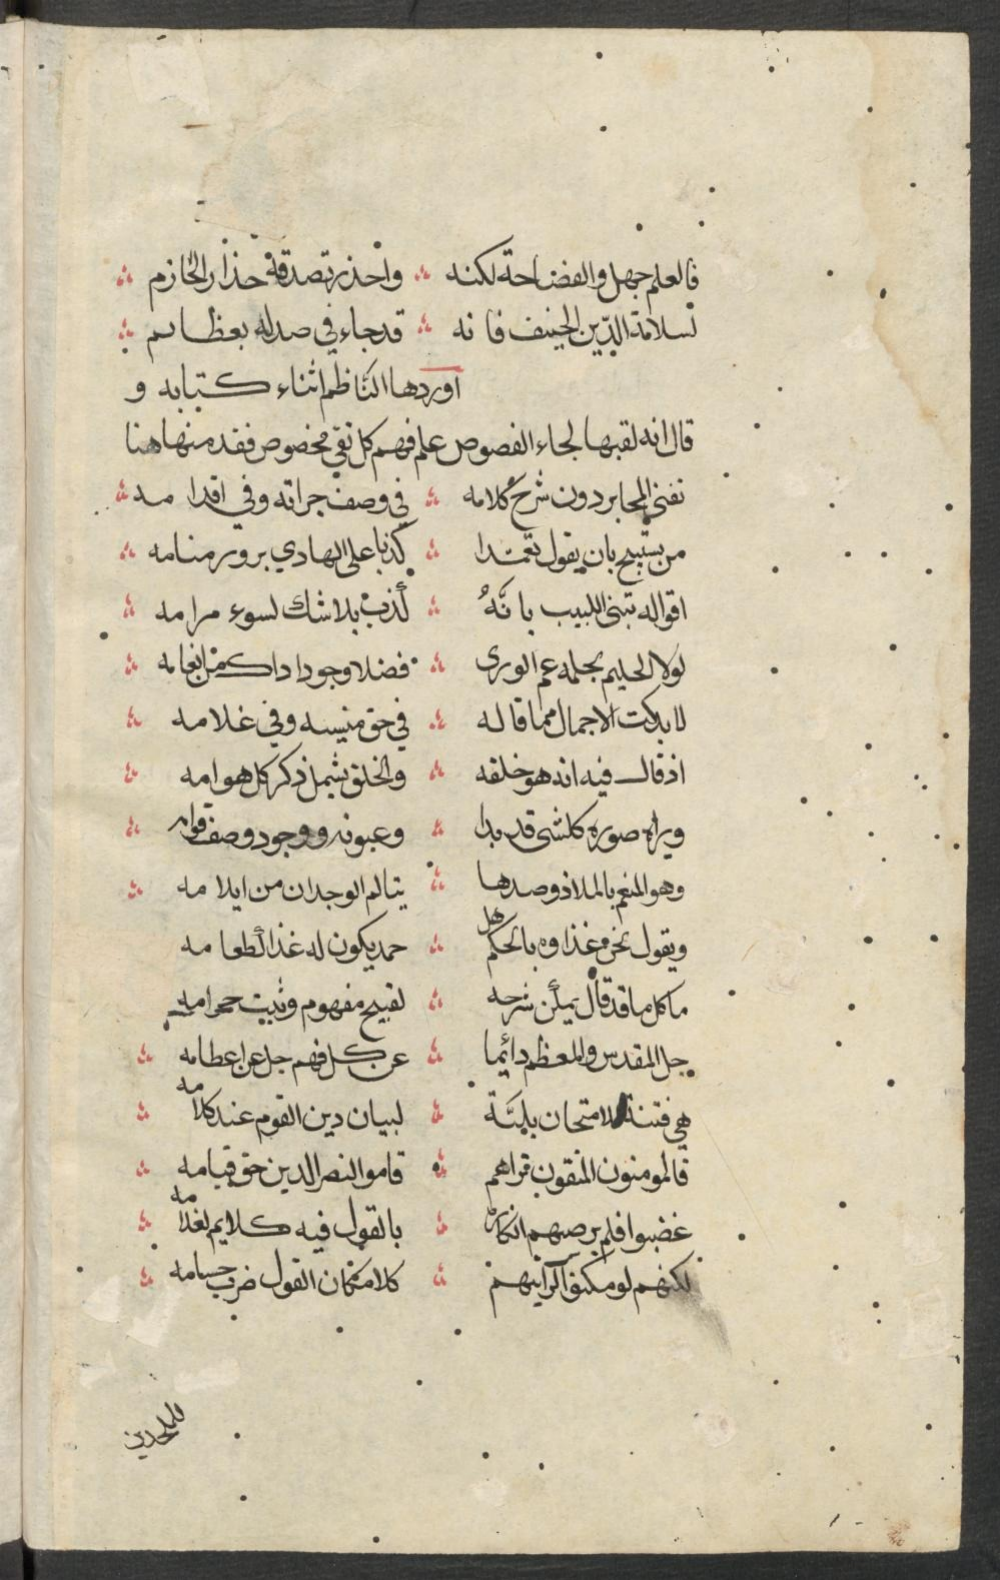 فالعلم جهل والفضاحة لكنه ؞ واحذر تصدقه حذار الحازم ؞
لسلامة الدين الحنيف فانه ؞ قد جاء في صدله بعظائم ؞
اوردها الناظم اثناء كتابه و
قال انه لقبها لجاء الفصوص علم فهم كل نقي مخصوص فقد منها هنا
تفنى المحابر دون شرح كلامه ؞ في وصف جراته وفي اقدامه ؞
من يستبيح بان يقول تعمدا ؞ كذبا على الهادي بزور منامه ؞
اقواله تبنى اللبيب بانه ؞ أكذب بلا شك لسوء مرامه ؞
لولا الحليم بحلمه عم الورى ؞ فضلا وجودا ذاك من انعامه ؞
لا بدكت الاجبال مما قاله ؞ في حق منيسه وفي غلامه ؞
اذ قال فيه انه هو خلقه ؞ والخلق يشمل ذكر كل هوامه ؞
ويراه صوره كلشى قد بدا ؞ وعيونه ووجود وصف قوامه ؞
وهو المنعم بالملاذ وصدها ؞ يتالم الوجدان من ايلامه ؞
ويقول نحن غذاوه بالحكم هل ؞ حمد يكون له غذا لطعامه
ما كل ما قد قال يمكن شرحه ؞ لقبيح مفهوم وثبت حرامه
جل المقدس والمعظم دائما ؞ عن كل فهم جل عن اعظامه ؞
هي فتنة لامتحان بليّة ؞ لبيان دين القوم عند كلامه ؞
فالمومنون المتقون تراهم ؞ قاموا لنصر الدين حق قيامه ؞
غضبوا فلم يرضهم انكار ؞ بالقول فيه كلايم لغلامه ؞
لكنهم لو مكنوا لرايتهم ؞ كلا مكان القول ضرب حسامه ؞
للملحدين